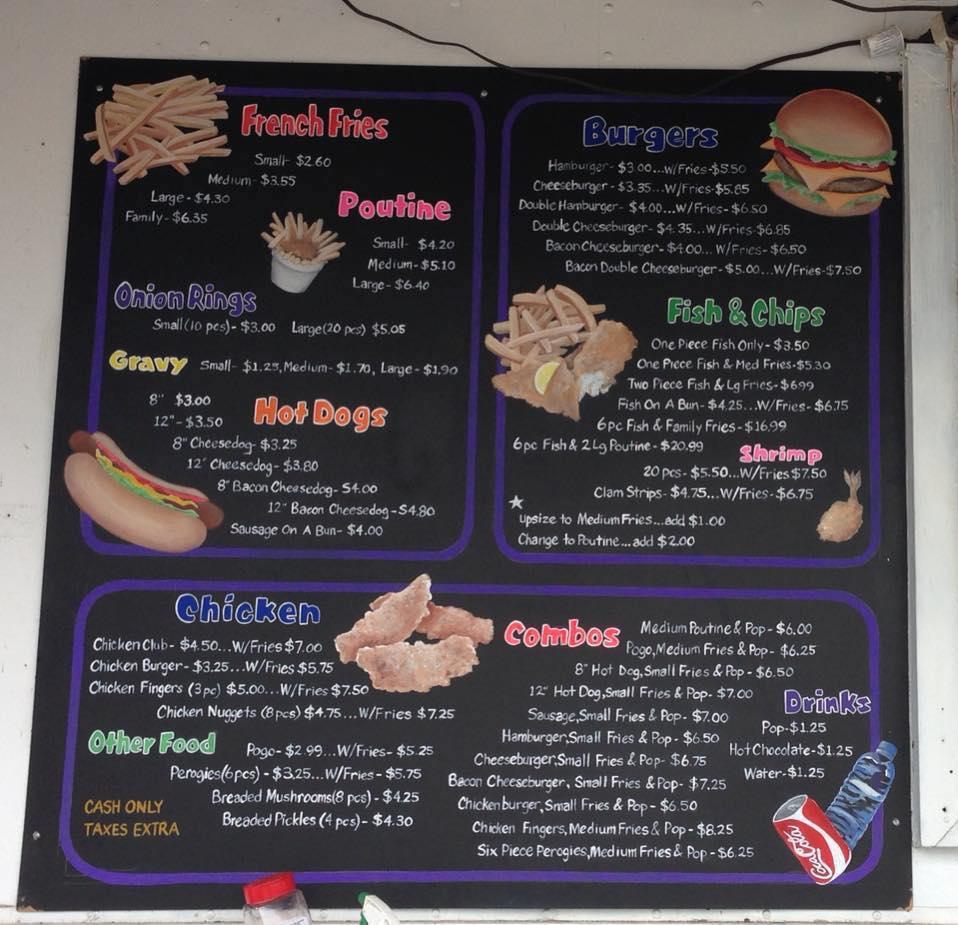 French Fries
Small- $2.60
Medium- $3.55
Large - $4.30
Family- $6.35
Poutine
Small- $4.20
Medium- $5.10
Large- $6.40
Onion Rings
Small(10 pcs)- $3.00 Large(20 pcs) $5.05
Gravy Small- $1.25, Medium- $1.70, Large- $1.90
Hot Dogs
8" $3.00
12"- $3.50
8" Cheesedog- $3.25
12" Cheesedog- $3.80
8" Bacon Cheesedog- $4.00
12" Bacon Cheesedog- $4.80
Sausage On A Bun- $4.00
Burgers
Hamburger- $3.00...w/Fries-$5.50
Cheeseburger- $3.35...W/Fries-$5.85
Double Hamburger- $4.00...W/Fries- $6.50
Double Cheeseburger- $4.35...W/Fries-$6.85
Bacon Cheeseburger- $4.00... W/Fries- $6.50
Bacon Double Cheeseburger- $5.00...W/Fries-$7.50
Fish & Chips
One Piece Fish Only- $3.50
One Piece Fish & Med Fries-$5.30
Two Piece Fish & Lg Fries- $6.99
Fish On A Bun- $4.25...W/Fries- $6.75
6pc Fish & Family Fries- $16.99
6pc Fish & 2 Lg Poutine- $20.99
Shrimp
20 pcs- $5.50...W/Fries $7.50
Clam Strips- $4.75...W/Fries- $6.75
upsize to Medium Fries...add $1.00
Change to Poutine...add $2.00
Chicken
Chicken Club- $4.50...W/Fries $7.00
Chicken Burger- $3.25...W/Fries $5.75
Chicken Fingers (3pc) $5.00...W/Fries $7.50
Chicken Nuggets (8pcs) $4.75...W/Fries $7.25
Other Food
Pogo- $2.99...W/Fries- $5.25
Perogies(6pcs) - $3.25...W/Fries- $5.75
Breaded Mushrooms(8 pcs)- $4.25
Breaded Pickles (4 pcs)- $4.30
CASH ONLY
TAXES EXTRA
Combos
Medium Poutine & Pop- $6.00
Pogo, Medium Fries & Pop- $6.25
8" Hot Dog, Small Fries & Pop- $6.50
12" Hot Dog, Small Fries & Pop- $7.00
Sausage, Small Fries & Pop- $7.00
Hamburger, Small Fries & Pop- $6.50
Cheeseburger, Small Fries & Pop- $6.75
Bacon Cheeseburger, Small Fries & Pop- $7.25
Chicken burger, Small Fries & Pop- $6.50
Chicken Fingers, Medium Fries & Pop- $8.25
Six Piece Perogies, Medium Fries & Pop- $6.25
Drinks
Pop-$1.25
Hot Chocolate-$1.25
Water-$1.25
Coca Cola